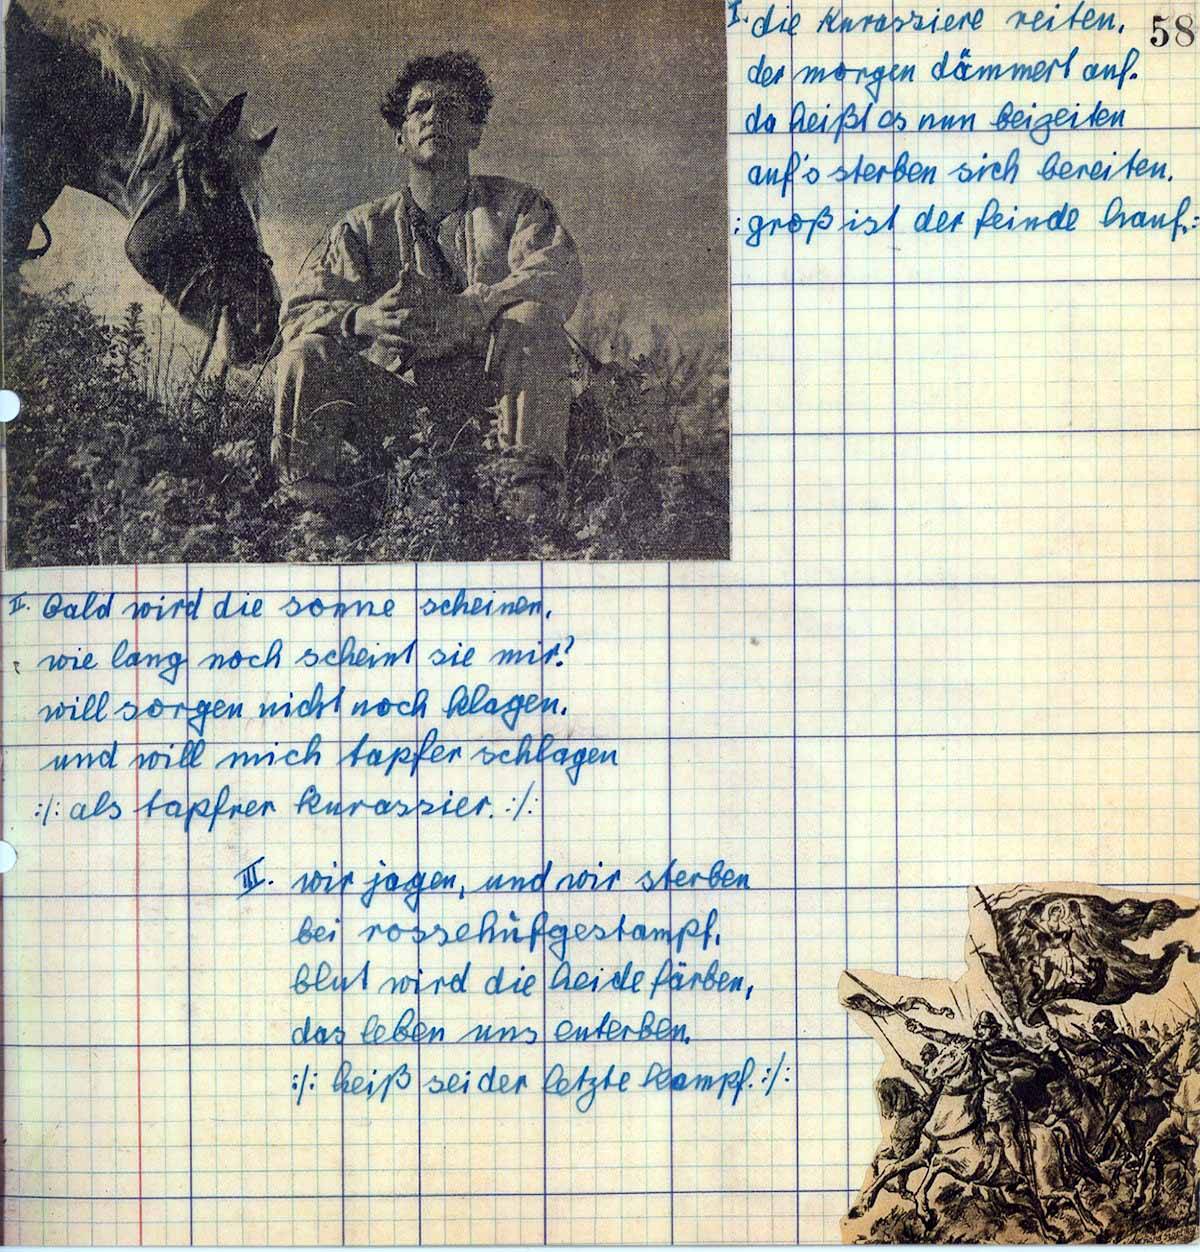 I. die kurassiere reiten,
58
der morgen dämmert auf.
da heißt es nun beizeiten
auf's sterben sich bereiten.
:groß ist der feinde hauf.:
II. bald wird die sonne scheinen,
wie lang noch scheint sie mir?
will sorgen nicht noch klagen.
und will mich tapfer schlagen
:/: als tapfrer kurassier. :/:
III. wir jagen, und wir sterben
bei rossehufgestampf.
blut wird die heide färben,
das leben uns enterben.
:/: heiß sei der letzte kampf. :/: